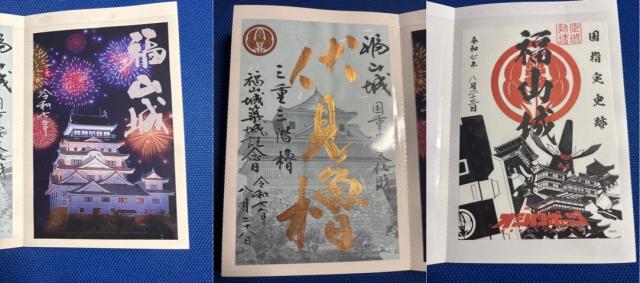 福山城
令和七年
福山城
国重要文化財
伏見櫓
三重三階櫓
福山城築城記念日
令和七年
八月二十八日
国指定史跡
福山城
令和七年
八月二十三日